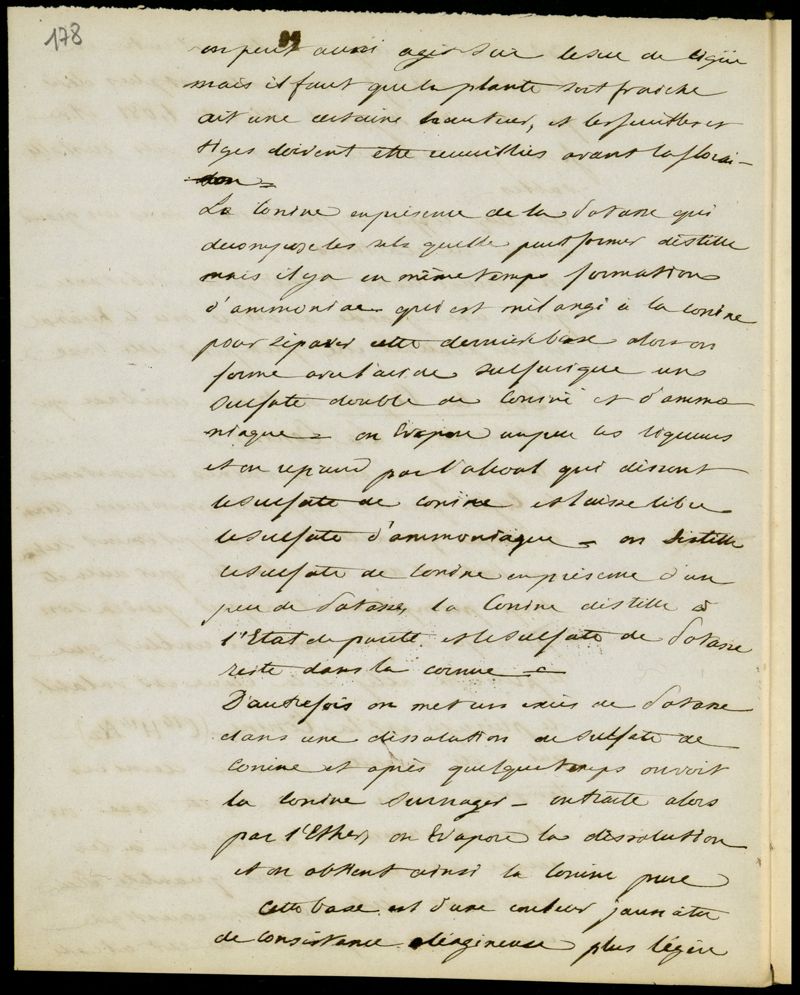 178
on peut aussi agir sur le suc de cigüe
mais il faut que la plante soit fraiche
ait une certaine hauteur, et les feuilles et
tiges doivent etre cueuillies avant la florai-
son =
La Conine en présence de la Potasse qui
decompose les sels quelle peut former distille
mais il y a en même temps formation
d'ammoniac qui est mélangé à la conine
pour séparer cette dernière base alors on
forme avec l'acide sulfurique un
sulfate double de Conine et d'ammo
niaque = on Evapore un peu les liqueurs
et on reprend par l'alcool qui dissout
le sulfate de conine et laisse libre
le sulfate d'ammoniaque = on Distille
le sulfate de Conine en présence d'un
peu de Potasse, la Conine distille à
l'Etat de pureté et le sulfate de Potasse
reste dans la cornue =
D'autrefois on met un excès de Potasse
dans une dissolution de sulfate de
Conine et après quelque temps on voit
la Conine surnager - on traite alors
par l'Ether, on Evapore la dissolution
et on obtient ainsi la Conine pure
Cette base est d'une couleur jaunatre
de consistance oléagineuse plus légère